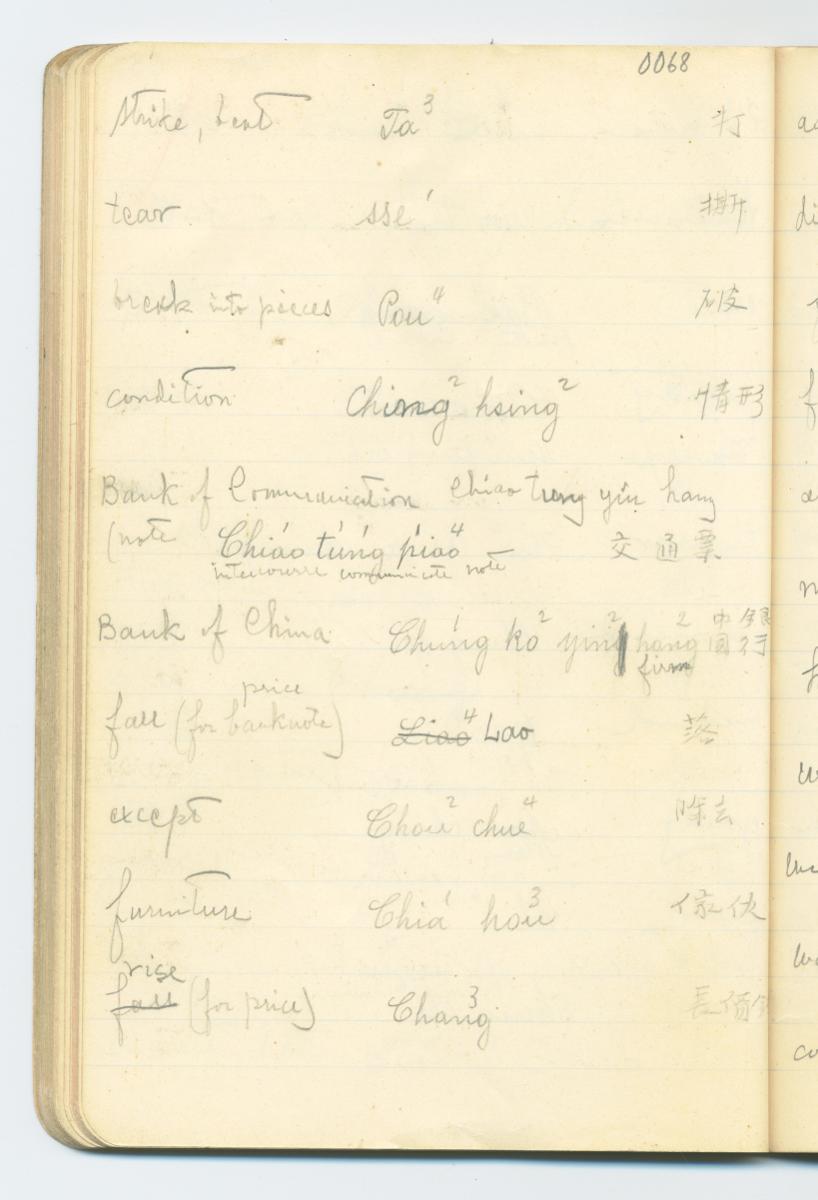 0068
strike, beat Ta³ 打
tear sse' 撕
break into pieces Pou⁴ 破
condition Ching² hsing² 情形
Bank of Communication Chiao tung yin hang
(note Chiáo túng piao⁴ 交通票
intercourse communicate note
Bank of China Chung' ko² ying² hang² 中国銀行
firm
price
fall (for banknote) Liao⁴ Lao 落
except Chou² chue⁴ 除去
furniture Chia' hou³ 傢伙
rise
fall (for price) Chang³ 長價